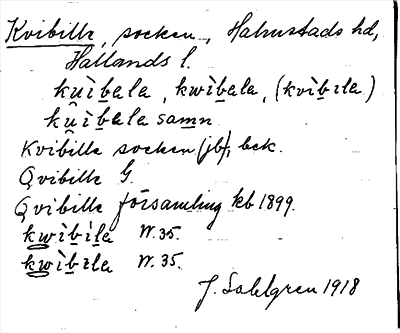 Kvibille, socken, Halmstads hd,
Hallands l.
ku̯ìbala, kwìbala, (kvìbɩla)
ku̯ìbala samn
Kvibille socken (jb), bek.
Qvibille G.
Qvibille församling kb 1899.
kwìbila W. 35.
kwìbɩla W. 35.
J. Sahlgren 1918